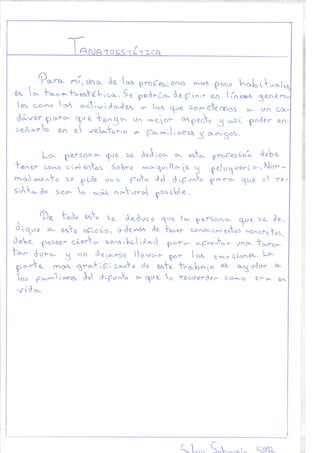 TANATOESTÉTICA
Para mí, una de las profesiones mas poco habituales
es la tanatoestética. Se podría definir en líneas genera-
les como las actividades a las que sometemos a un ca-
dáver para que tenga un mejor aspecto y así poder en-
señarlo en el velatorio a familiares y amigos.
La persona que se dedica a esta profesión debe
tener conocimientos sobre maquillaje y peluquería. Nor-
malmente se pide una foto del difunto para que el re-
sultado sea lo más natural posible.
De todo esto se deduce que la persona que se de-
dique a este oficio, además de tener conocimientos concretos,
debe poseer cierta sensibilidad para afrontar una tarea
tan dura y no dejarse llevar por las emociones. La
parte mas gratificante de este trabajo es ayudar a
los familiares del difunto a que lo recuerden como era en
vida.